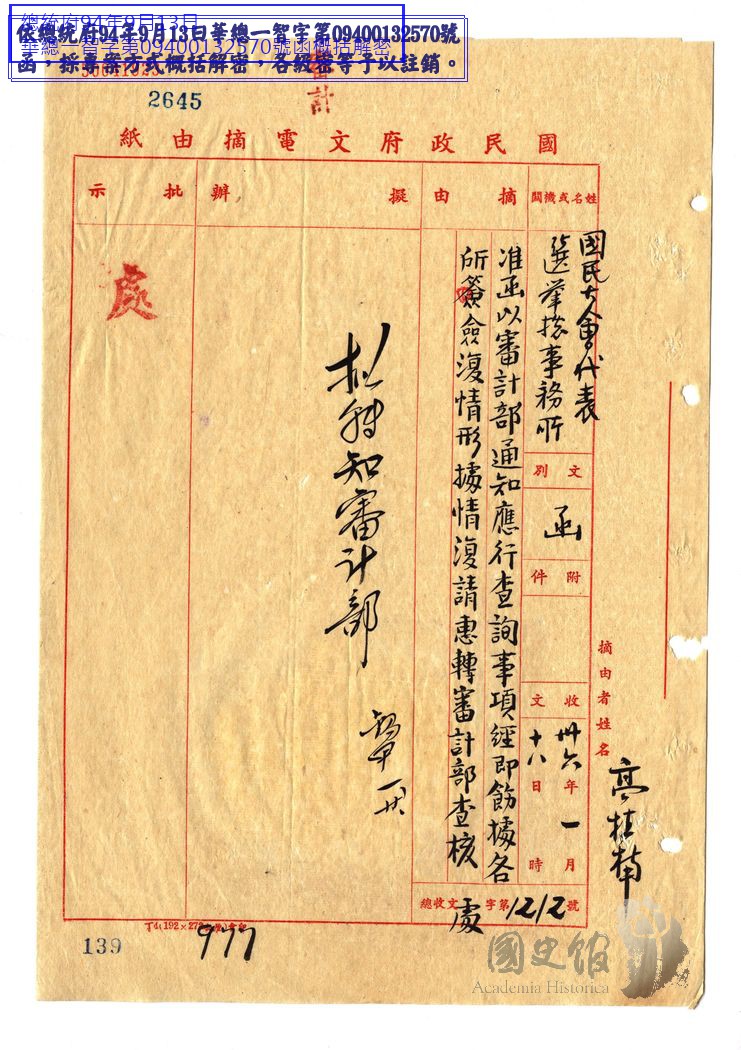 總統府94年9月13日
華總一智字第09400132570號函概括解密
依總統府94年9月13日華總一智字第09400132570號
函，採專案方式概括解密，各級密等予以註銷。
2645
計
國民政府文電摘由紙
姓名或機關
國民大會代表
選舉總事務所
文別
函
附件
收文
卅六年一月
十八日 時
摘由
准函以審計部通知應行查詢事項經即飭據各
所簽僉復情形據情復請惠轉審計部查核
擬辦
批示
處
抄轉知審計部
總收文 處 字第1212號
摘由者姓名
高桂楠
139
977
國史館
Academia Historica